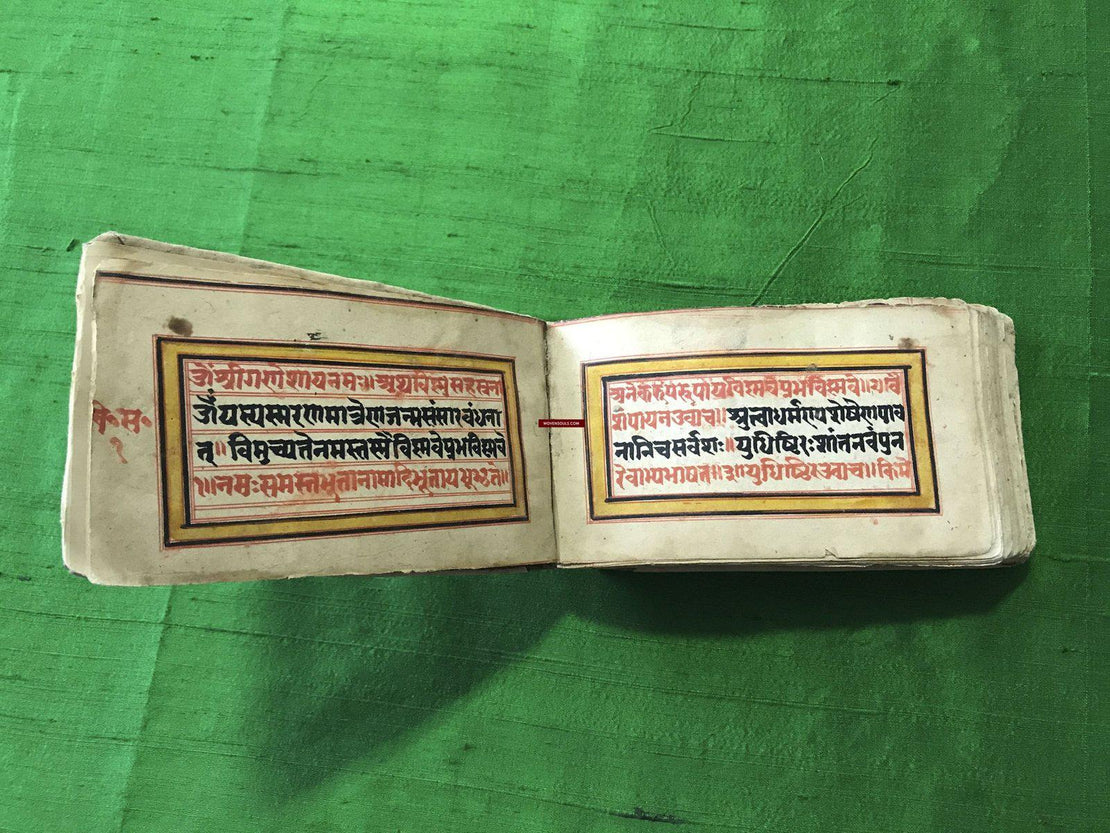 ॐश्रीगणेशायनमः॥अथविस्मसहस्रना
ॐयस्यस्मरणमात्रेणजन्मसंसारबंधना
त्॥विमुच्यतेनमस्तस्मैविस्मवेप्रभविस्मवे
१॥नमःसमस्तभूतानामादिभूतायभूभृते॥
वि॰स॰
१
अनेकरूपरूपायविस्मवेप्रभविस्मवे॥
शंपायनउवाच॥श्रुत्वाधर्माण्यशेषेणपाव
नानिचसर्वशः॥युधिष्ठिरःशांतनवंपुन
रेवाभ्यभाषत॥ युधिष्ठिरउवाच॥किमे
WOVENSOULS.COM